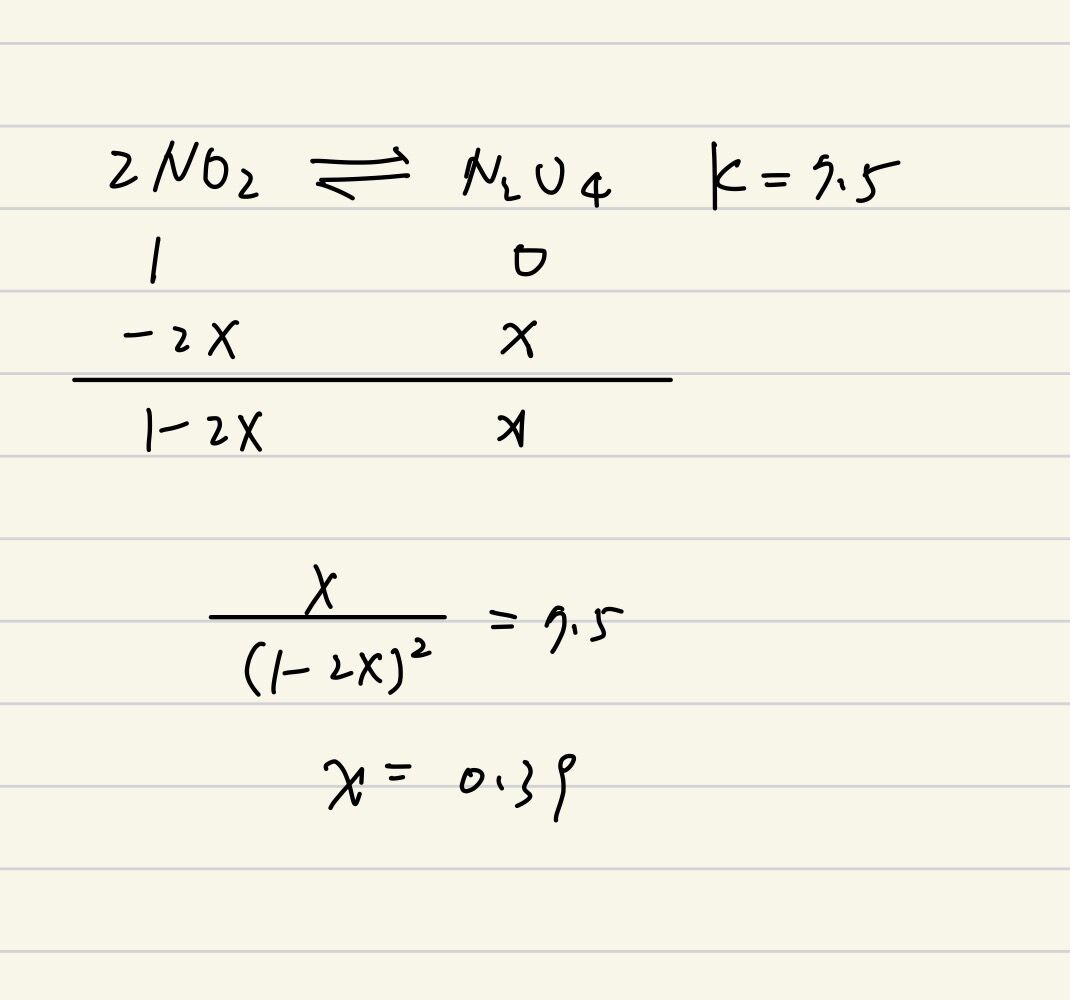 2NO₂ ⇌ N₂O₄ K = 7.5
1 0
-2x x
1-2x x
x
(1-2x)² = 7.5
x = 0.39